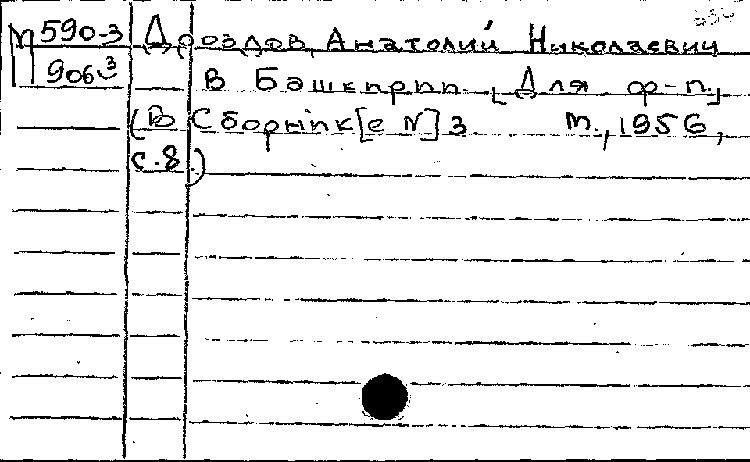 М 590-3 Дроздов, Анатолий Николаевич
П 906-3 В Башкирии [Для ф-п.]
(В Сборник[е №] 3 М., 1956,
с. 8)